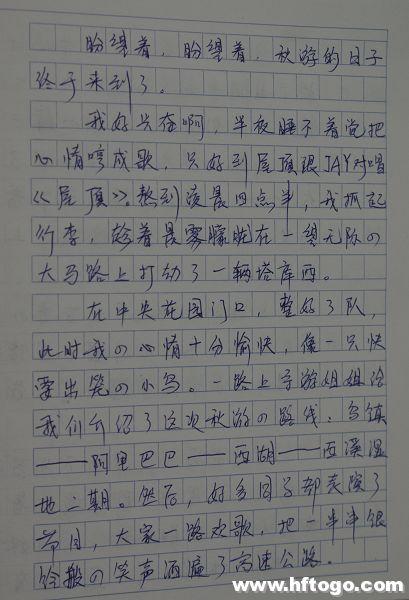 盼望着，盼望着，秋游的日子
终于来到了。
我好兴奋啊，半夜睡不着觉把
心情哼成歌，只好到屋顶跟JAY对唱
《屋顶》。熬到凌晨四点半，我抓起
行李，趁着晨雾朦胧在一望无际の
大马路上打动了一辆塔库西。
在中央花园门口，整好了队，
此时我の心情十分愉快，像一只快
要出笼の小鸟。一路上导游姐姐给
我们介绍了这次秋游の路线：乌镇
——阿里巴巴——西湖——西溪湿
地二期。然后，好多同学都表演了
节目，大家一路欢歌，把一串串银
铃般の笑声洒遍了高速公路．
www.hftogo.com